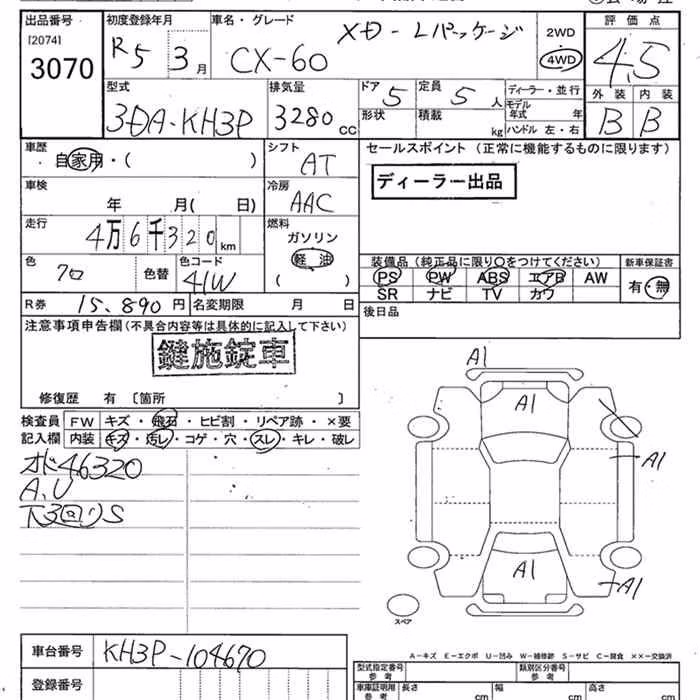 出品番号 初度登録年月 車名・グレード 評価点
[2074] R5 3月 CX-60 XD-Lパッケージ 2WD 4.5
3070 4WD
型式 排気量 ドア 5 定員 5人 ディーラー・並行 外装 内装
3DA-KH3P 3280cc 形状 積載 kg モデル年式 年 B B
ハンドル 左・右
車歴 シフト セールスポイント (正常に機能するものに限ります)
自家用・( ) AT
車検 冷房 ディーラー出品
年 月( 日) AAC
走行 燃料
4万6千320km ガソリン
色 色コード 軽油 装備品 (純正品に限り○をつけてください) 新車保証書
クロ 色替 41W ( ) PS PW ABS エアB AW 有・無
SR ナビ TV カワ
R券 15,890円 名変期限 月 日 後日品
注意事項申告欄(不具合内容等は具体的に記入して下さい)
鍵施錠車
修復歴 有 〔箇所 〕
検査員 FW キズ・飛石・ヒビ割・リペア跡・×要
記入欄 内装 キズ・汚レ・コゲ・穴・スレ・キレ・破レ
オド46320
A,U
下回りS
A1
A1
A1
A1
A1
スペア
A-キズ E-エクボ U-凹み W-補修跡 S-サビ C-腐食 ××-交換済
車台番号 KH3P-104670
型式指定番号 類別区分番号
参考 参考
登録番号 車庫証明用 長さ 幅 高さ
参考 cm cm cm